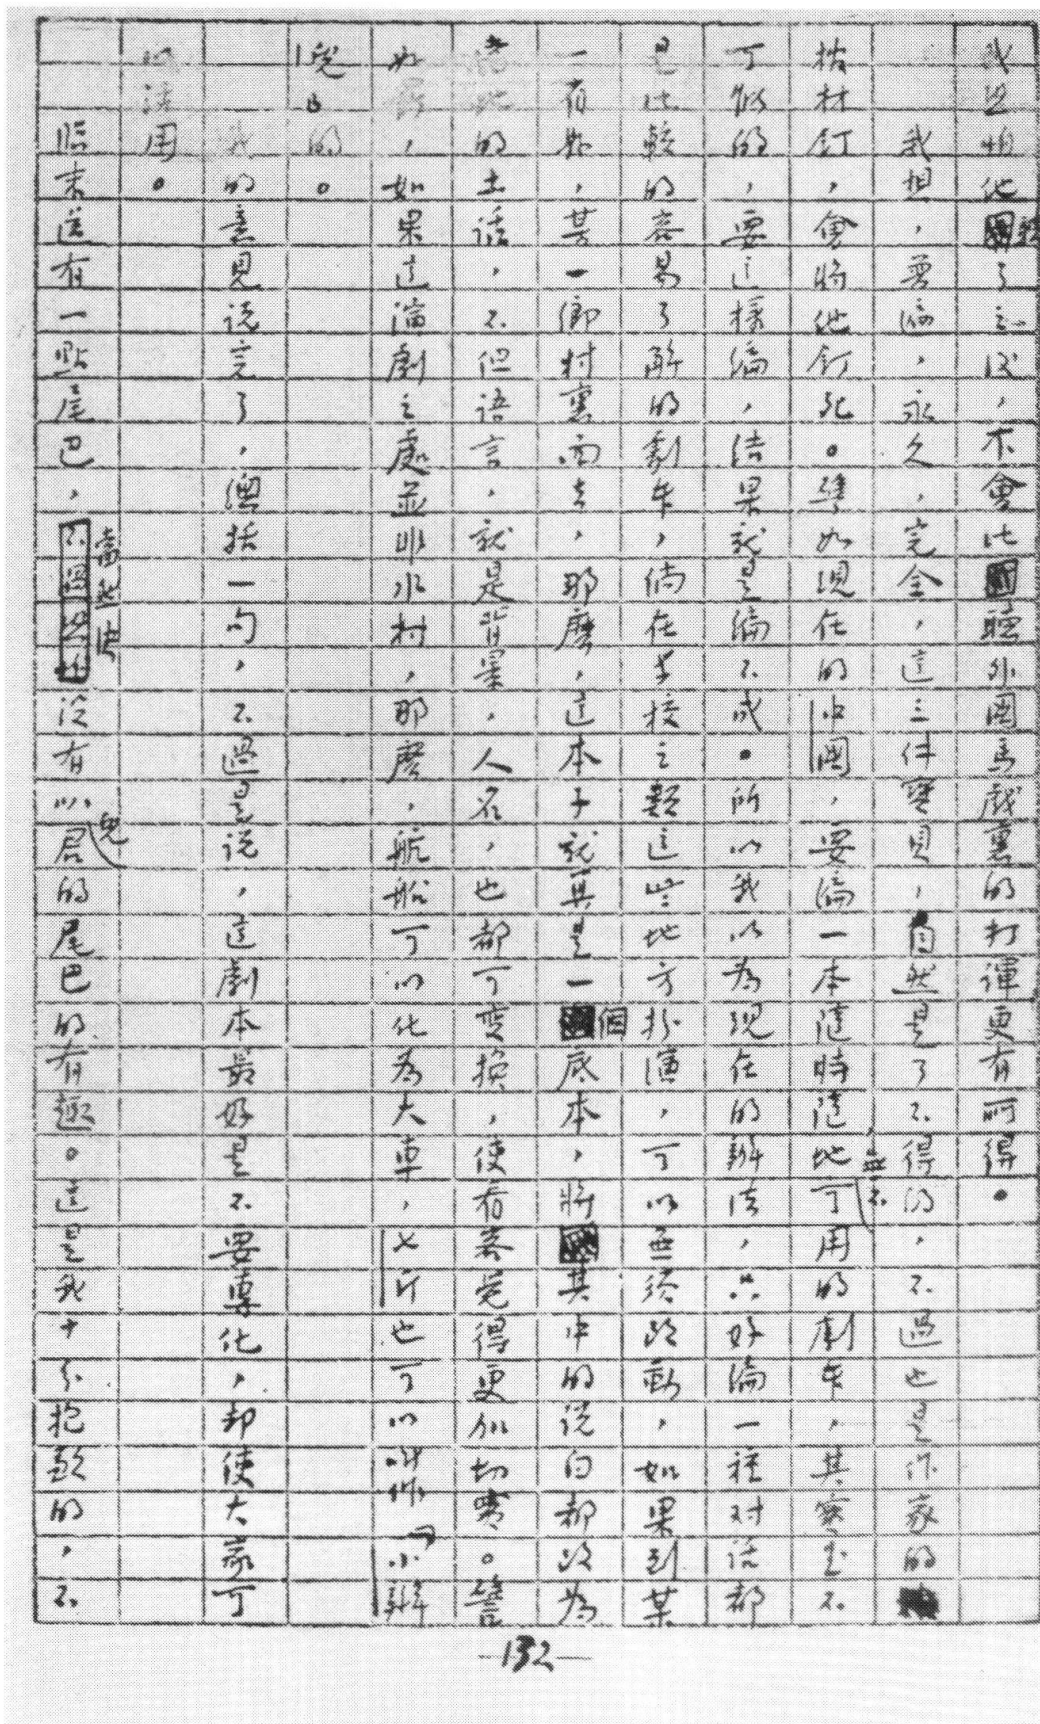 我恐怕他聽了之後，不會比聽外國馬戲裏的打諢更有所得。
我想，普遍，永久，完全，這三件寶貝，自然是了不得的，不過也是作家的
棺材釘，會將他釘死。譬如現在的中國，要編一本隨時隨地無不可用的劇本，其實是不
可能的，要這樣編，結果就是編不成。所以我以為現在的辦法，只好編一種对話都
是比較的容易了解的劇本，倘在学校之類這些地方扮演，可以無須改動，如果到某
一省縣，某一鄉村裏面去，那麼，這本子就算是一個底本，將其中的說白都改為
當地的土話，不但語言，就是背景，人名，也都可变换，使看客覚得更加切實。譬
如罷，如果這演劇之處並非水村，那麼，航船可以化為大車，七斤也可以叫作「小辮
兒」的。
我的意見说完了，總括一句，不過是说，這劇本最好是不要專化，却使大家可
以活用。
臨末還有一點尾巴，當然決沒有叭兒君的尾巴的有趣。這是我十分抱歉的，不
132